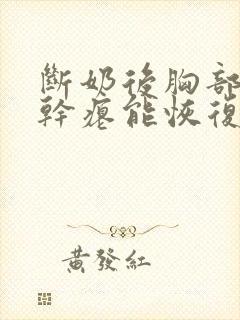 斷奶後胸部
幹癟能恢復
黃發紅